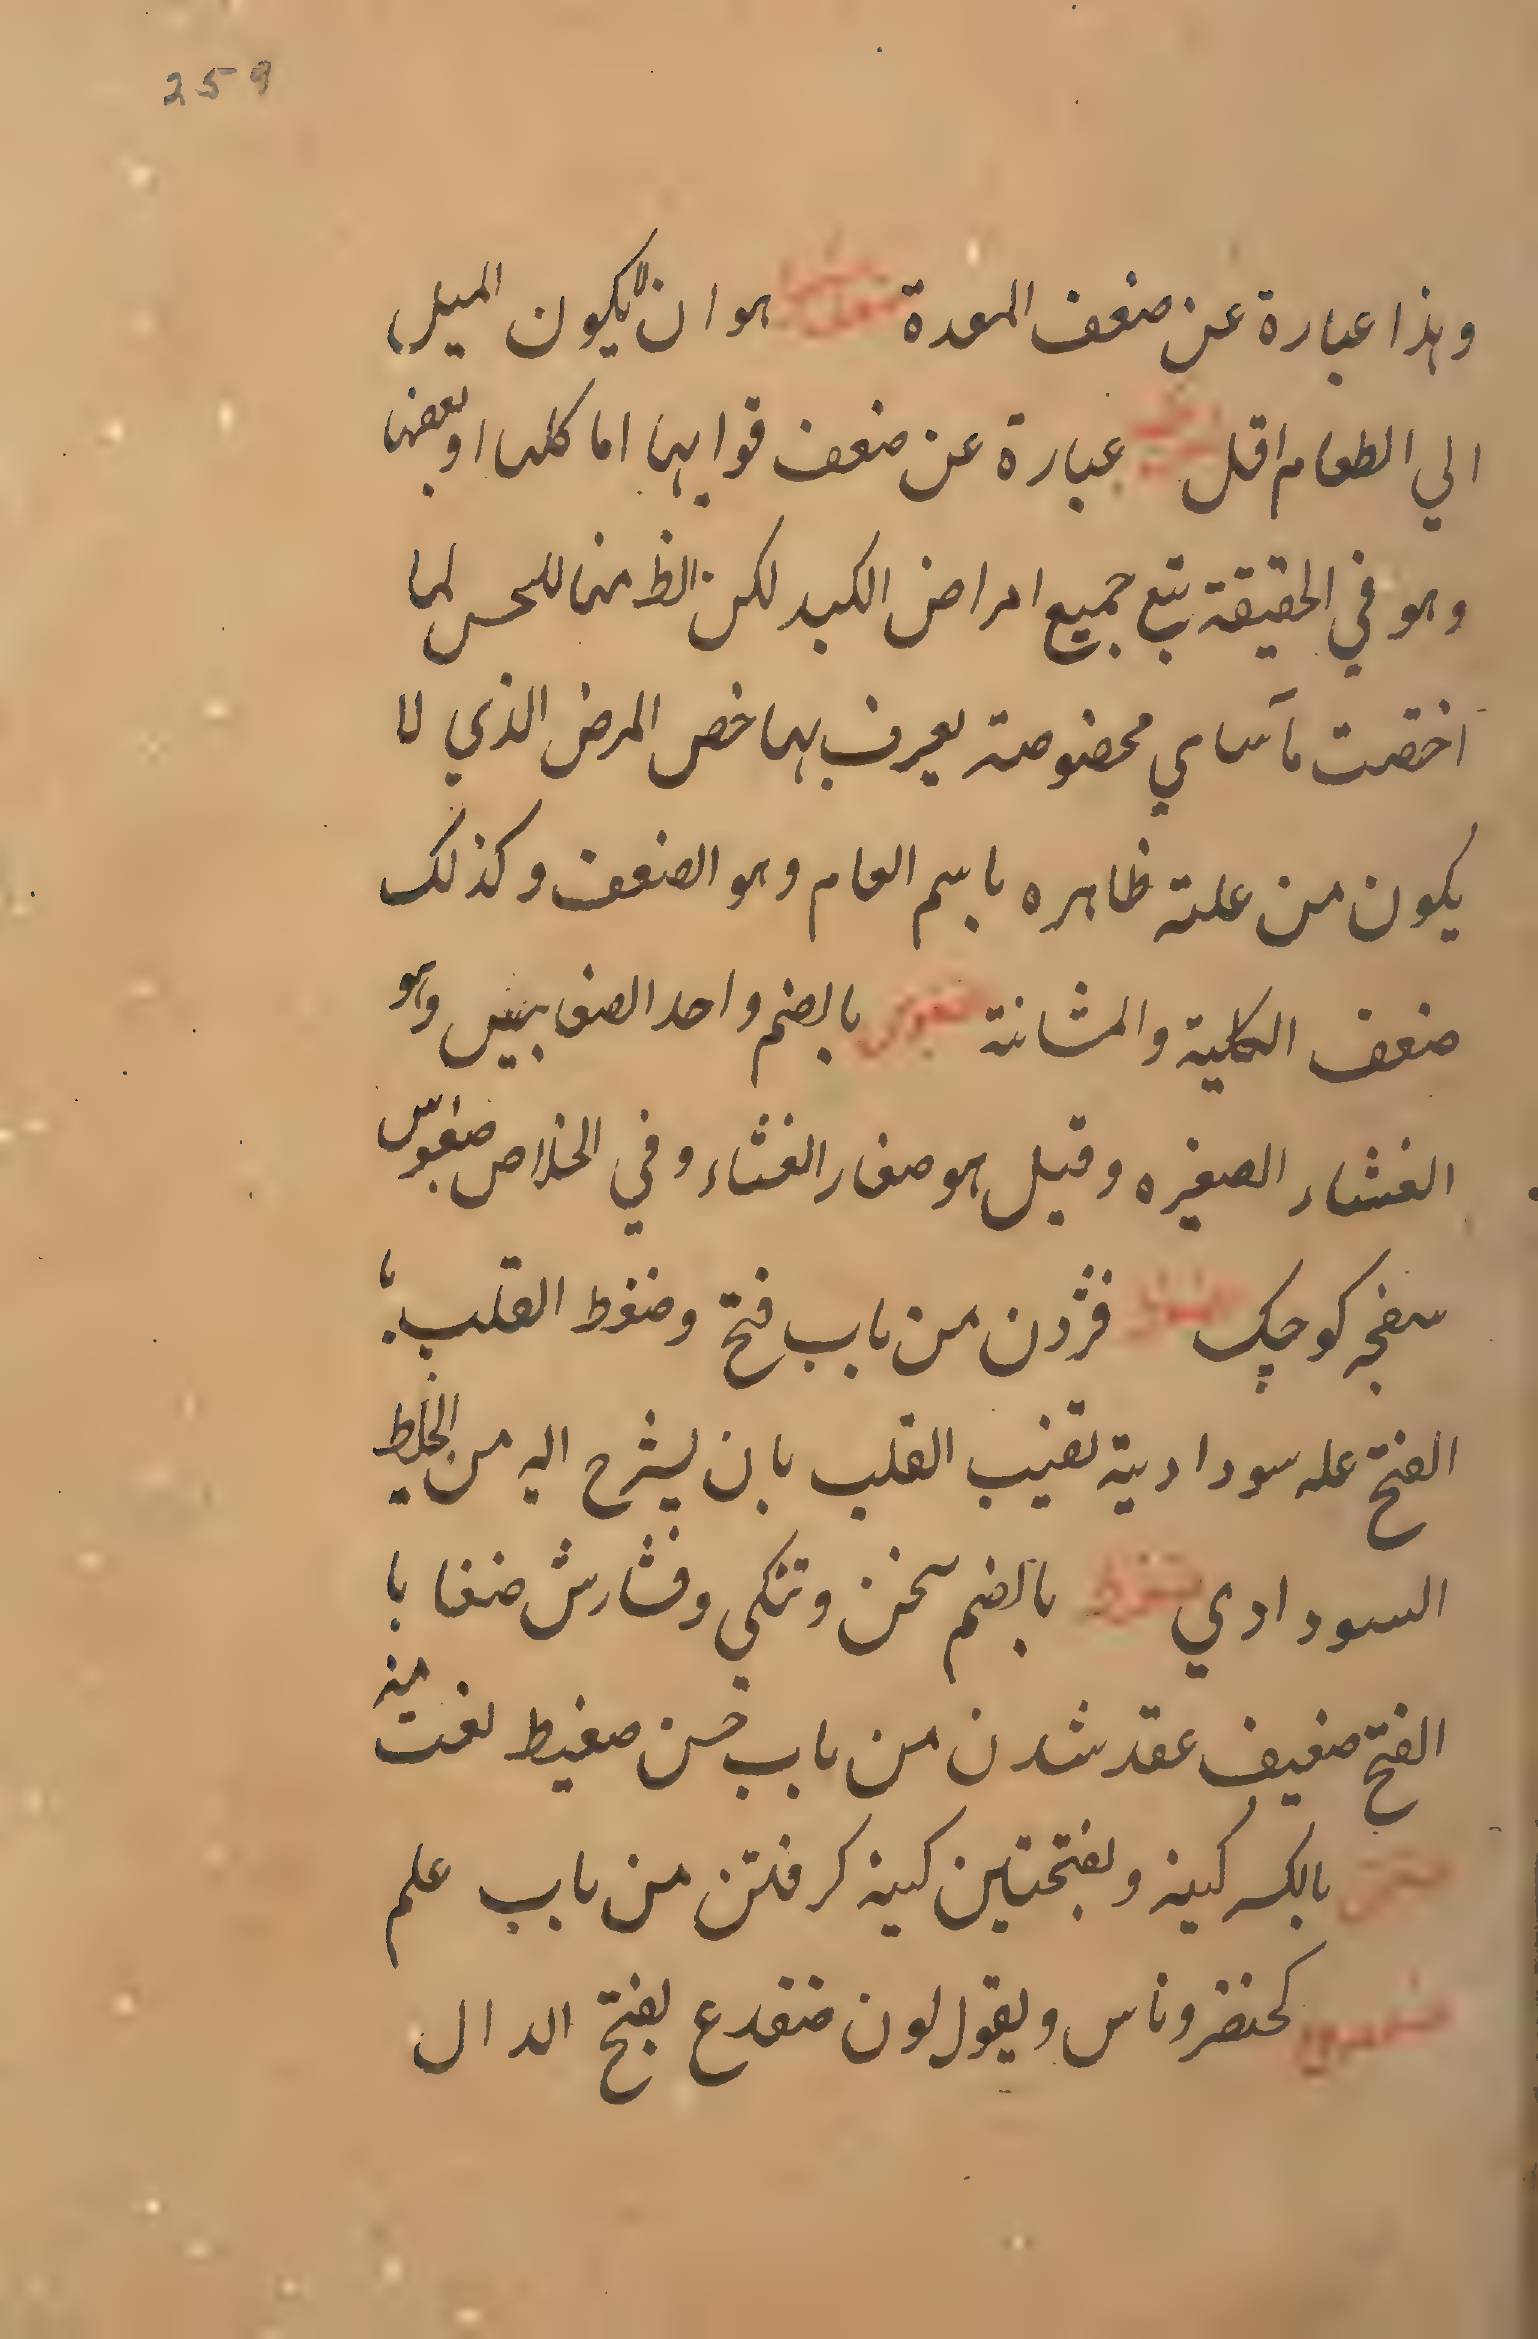 259
وہذا عبارة عن ضعف المعدة هو ان لا یکون المیل
الي الطعام اقل عبارة عن ضعف قواہا اما کلہا او بعضہا
وهو في الحقیقة یتبع جمیع امراض الکبد لکن الظ منہا للحس لہا
اختصت باسامي مخصوصة یعرف بہا خص المرض الذي لا
یکون من علة ظاہرہ باسم العام وهو الضعف وکذلک
ضعف الکلیة والمثانة ضغبوس بالضم واحد الضغابیس وهو
الغثاء الصغیرہ وقیل هو صغار الغثاء وفي الخلاص ضغبوس
کوچک فژدن من باب فتح وضغط القلب با
الفتح علہ سوداویة القلب بان یترشح الیہ من الخلط
السوداوي ضغط بالضم سخن وتنکي وفشارش ضغا با
الفتح ضعیف عقد شدن من باب حسن ضغیط لغت منہ
ضغن بالکسر کینہ وبفتحتین کینہ کرفتن من باب علم
ویقولون ضفدع بفتح الدال